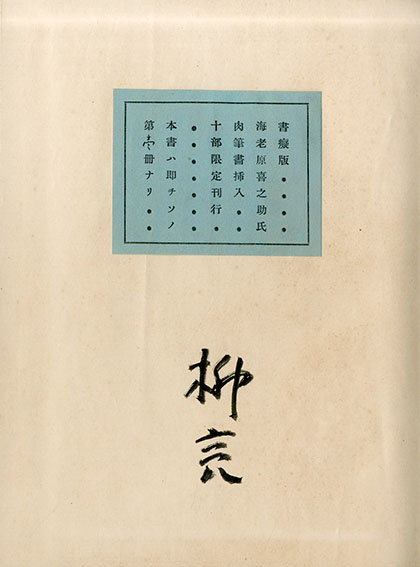 書癡版・・・・
海老原喜之助氏
肉筆畫挿入・・
十部限定刊行・
・・・・・・・
本書ハ即チソノ
第壱冊ナリ・・
柳亮